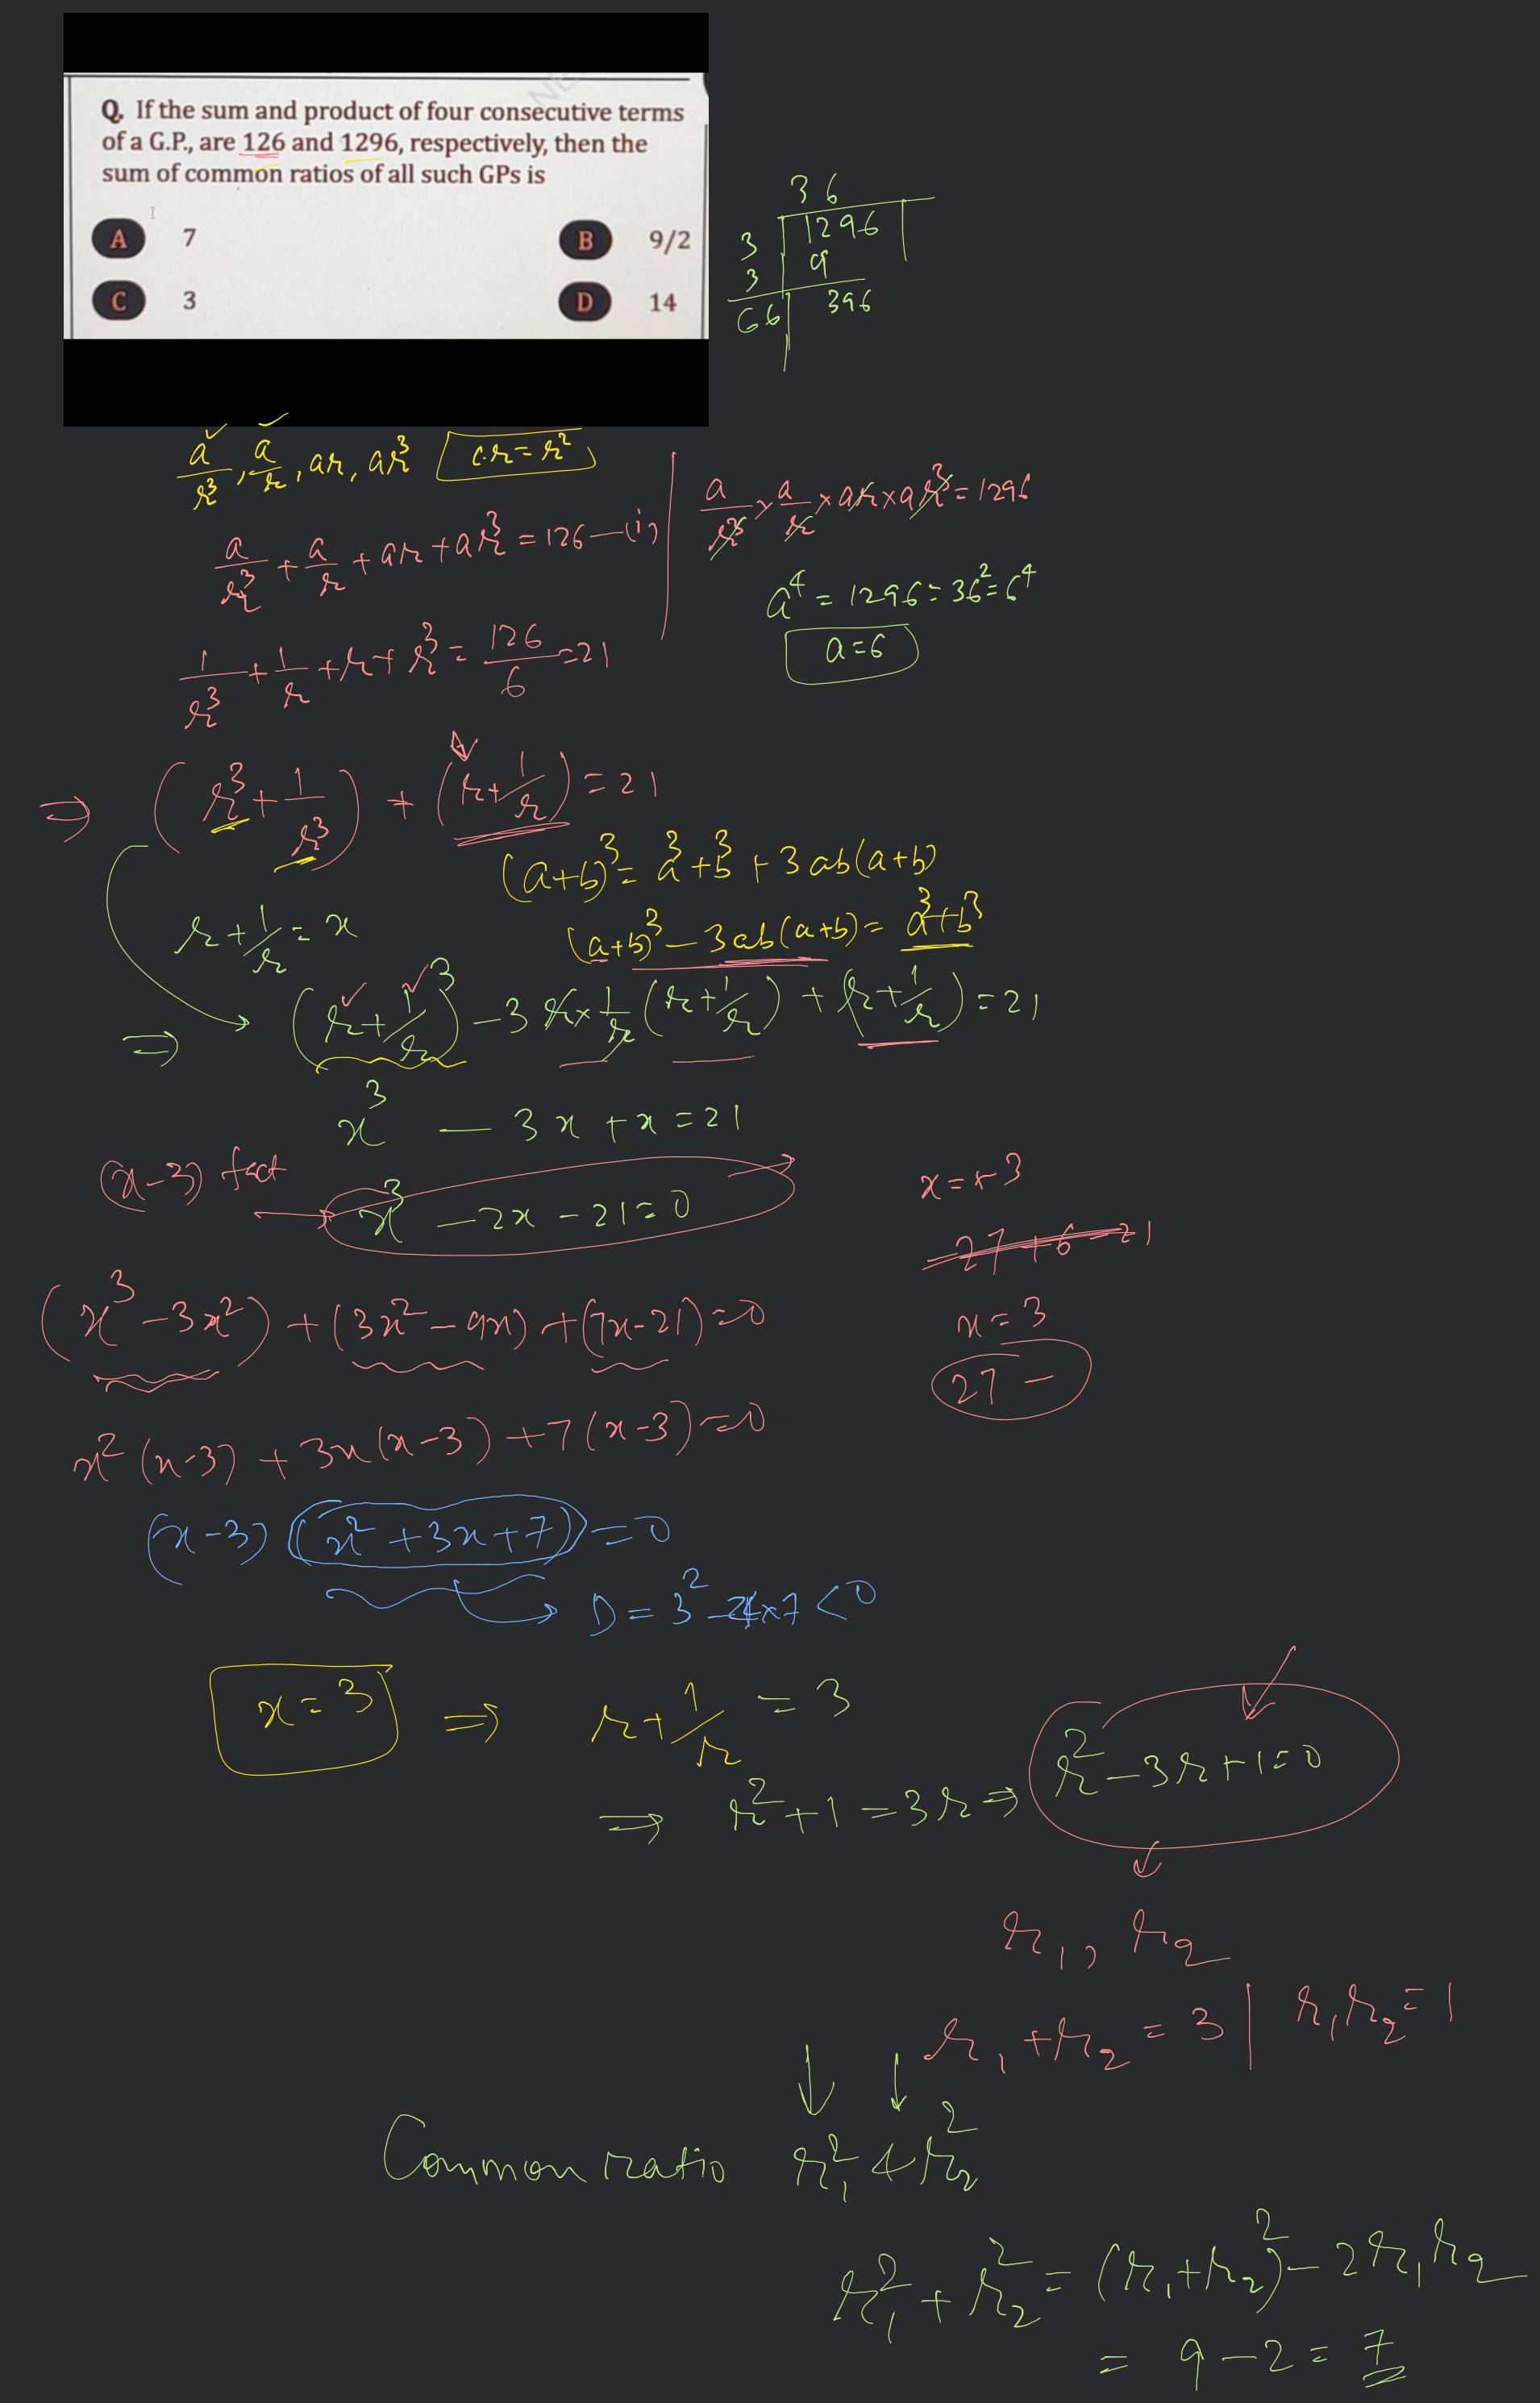 Q. If the sum and product of four consecutive terms
of a G.P., are 126 and 1296, respectively, then the
sum of common ratios of all such GPs is
A 7
B 9/2
C 3
D 14
36
3 | 1296
3 | 9
66 | 396
a/r³, a/r, ar, ar³ c.r = r²
a/r³ + a/r + ar + ar³ = 126 — (i)
1/r³ + 1/r + r + r³ = 126/6 = 21
a/r³ × a/r × ar × ar³ = 1296
a⁴ = 1296 = 36² = 6⁴
a = 6
⇒ (r³ + 1/r³) + (r + 1/r) = 21
(a+b)³ = a³ + b³ + 3ab(a+b)
(a+b)³ − 3ab(a+b) = a³ + b³
r + 1/r = x
⇒ (r + 1/r)³ − 3 r × 1/r (r + 1/r) + (r + 1/r) = 21
x³ − 3x + x = 21
(x−3) fact → x³ − 2x − 21 = 0
x = − 3
−27 + 6 = 21
x = 3
27 −
(x³ − 3x²) + (3x² − 9x) + (7x − 21) = 0
x²(x−3) + 3x(x−3) + 7(x−3) = 0
(x−3) (x² + 3x + 7) = 0
D = 3² − 4×7 < 0
x = 3 ⇒ r + 1/r = 3
⇒ r² + 1 = 3r ⇒ r² − 3r + 1 = 0
r₁, r₂
r₁ + r₂ = 3 | r₁r₂ = 1
Common ratio r₁² & r₂²
r₁² + r₂² = (r₁ + r₂)² − 2r₁r₂
= 9 − 2 = 7